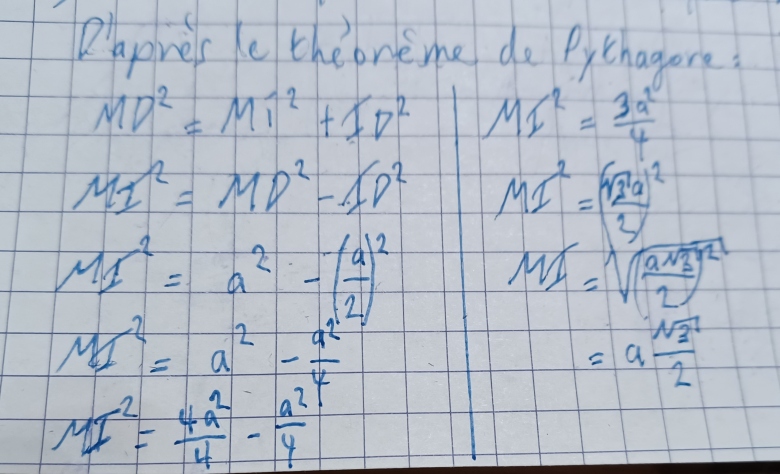 D'après le théorème de Pythagore :
MD² = MI² + ID²
MI² = MD² - ID²
MI² = a² - (a/2)²
MI² = a² - a²/4
MI² = 4a²/4 - a²/4
MI² = 3a²/4
MI² = (√3a/2)²
MI = √(a√3/2)²
= a √3/2